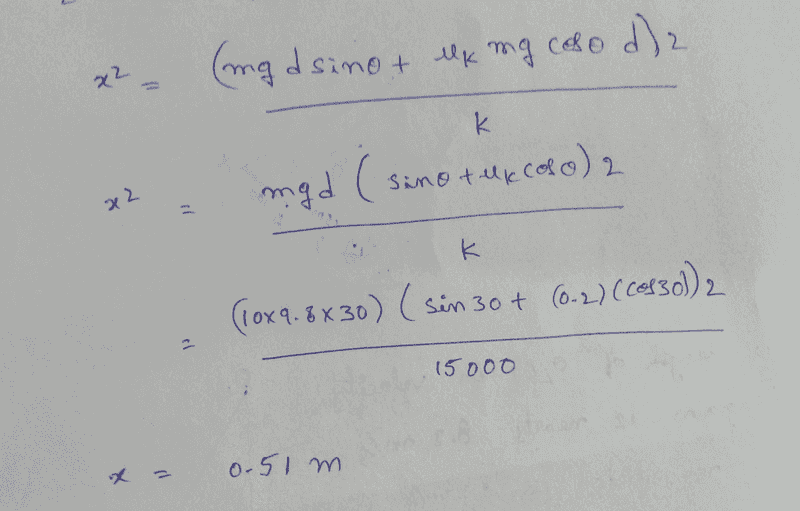 x² = (mg d sinθ + μk mg cosθ d) 2
k
x² = mgd ( sinθ + μk cosθ) 2
k
= (10×9.8×30) ( sin 30 + (0.2)(cos30)) 2
15000
x = 0.51 m